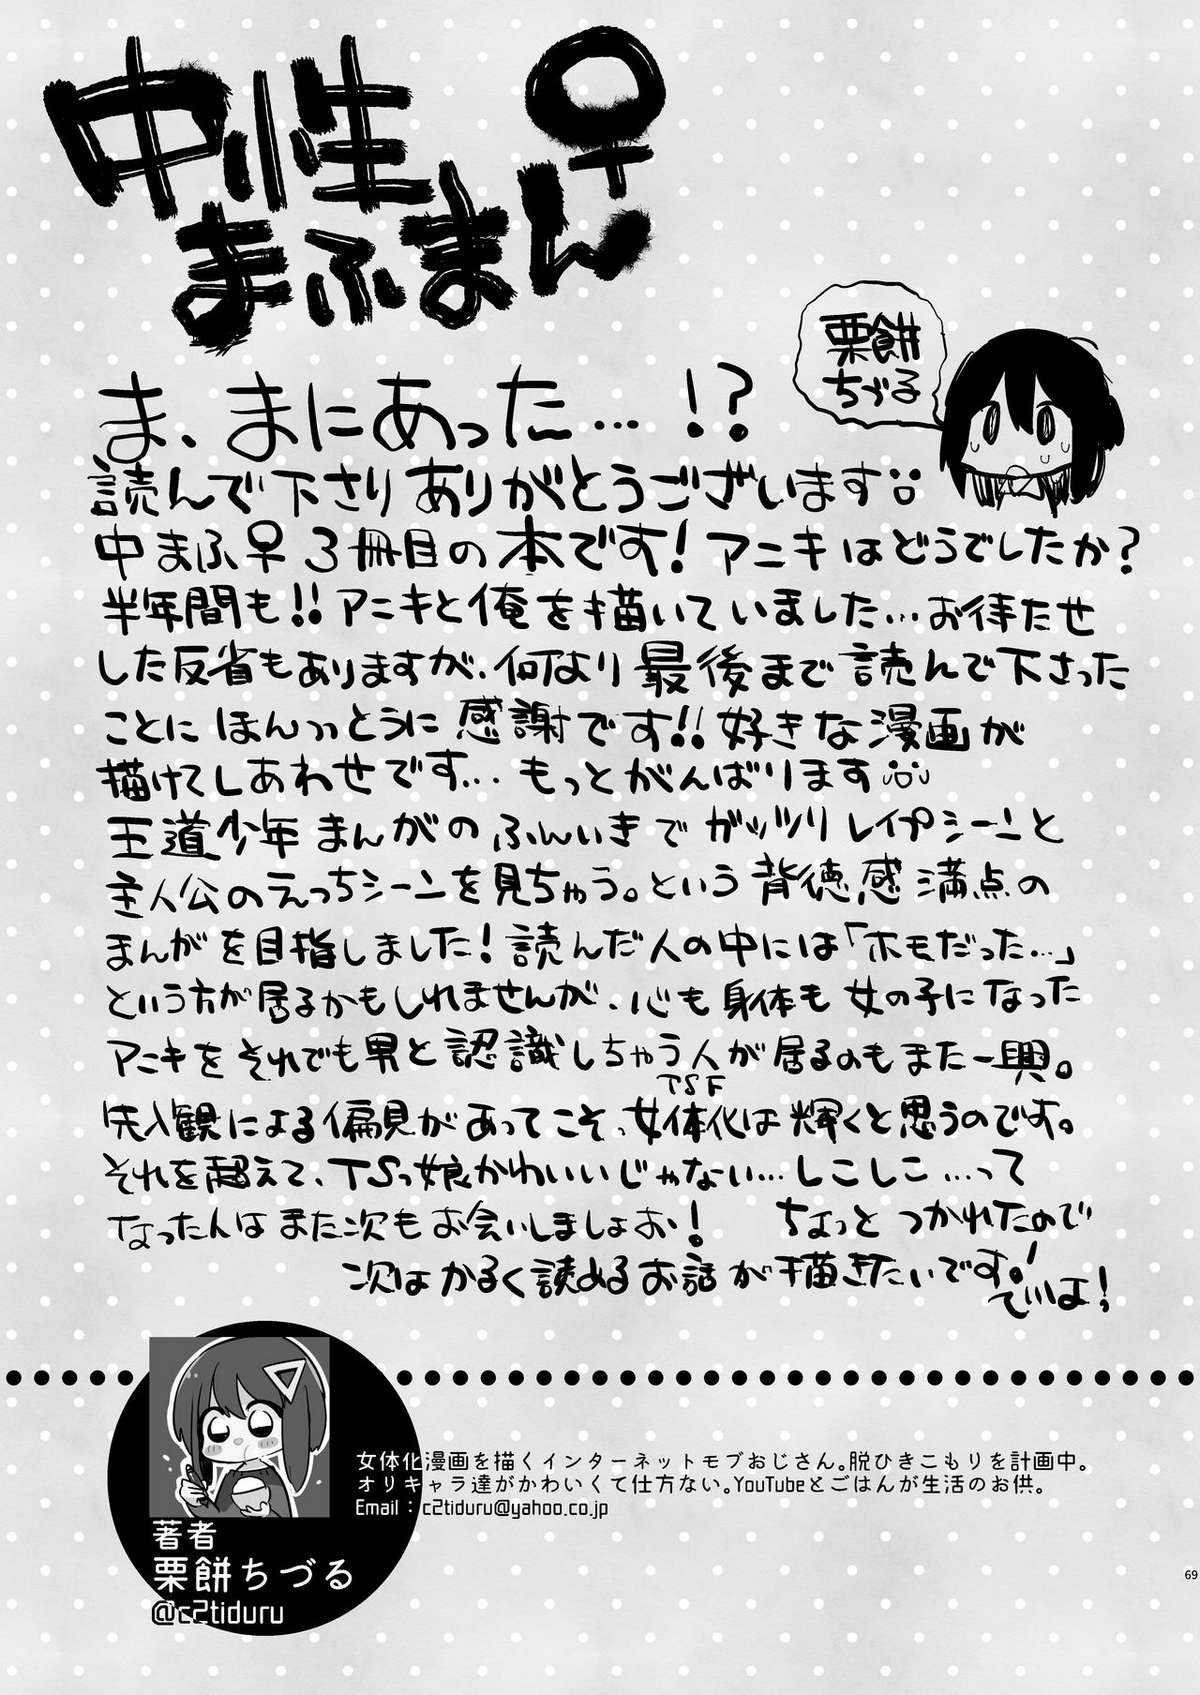 中性
まふまん♀
栗餅
ちづる
ま、まにあった…!?
読んで下さりありがとうございます
中まふ♀3冊目の本です!アニキはどうでしたか?
半年間も!!アニキと俺を描いていました…お待たせ
した反省もありますが、何より最後まで読んで下さった
ことにほんっっとうに感謝です!!好きな漫画が
描けてしあわせです…もっとがんばります
王道少年まんがのふんいきでガッツリレイプシーンと
主人公のえっちシーンを見ちゃう。という背徳感満点の
まんがを目指しました!読んだ人の中には「ホモだった…」
という方が居るかもしれませんが、心も身体も女の子になった
アニキをそれでも男と認識しちゃう人が居るのもまた一興。
TSF
先入観による偏見があってこそっ女体化は輝くと思うのです。
それを超えて、TSっ娘かわいいじゃない…しこしこ…って
なったんはまた次もお会いしましょお! ちょっとつかれたので
次はかるく読めるお話が描きたいです!
でいよ!
女体化漫画を描くインターネットモブおじさん。脱ひきこもりを計画中。
オリキャラ達がかわいくて仕方ない。YouTubeとごはんが生活のお供。
Email : c2tiduru@yahoo.co.jp
著者
栗餅ちづる
@c2tiduru
69